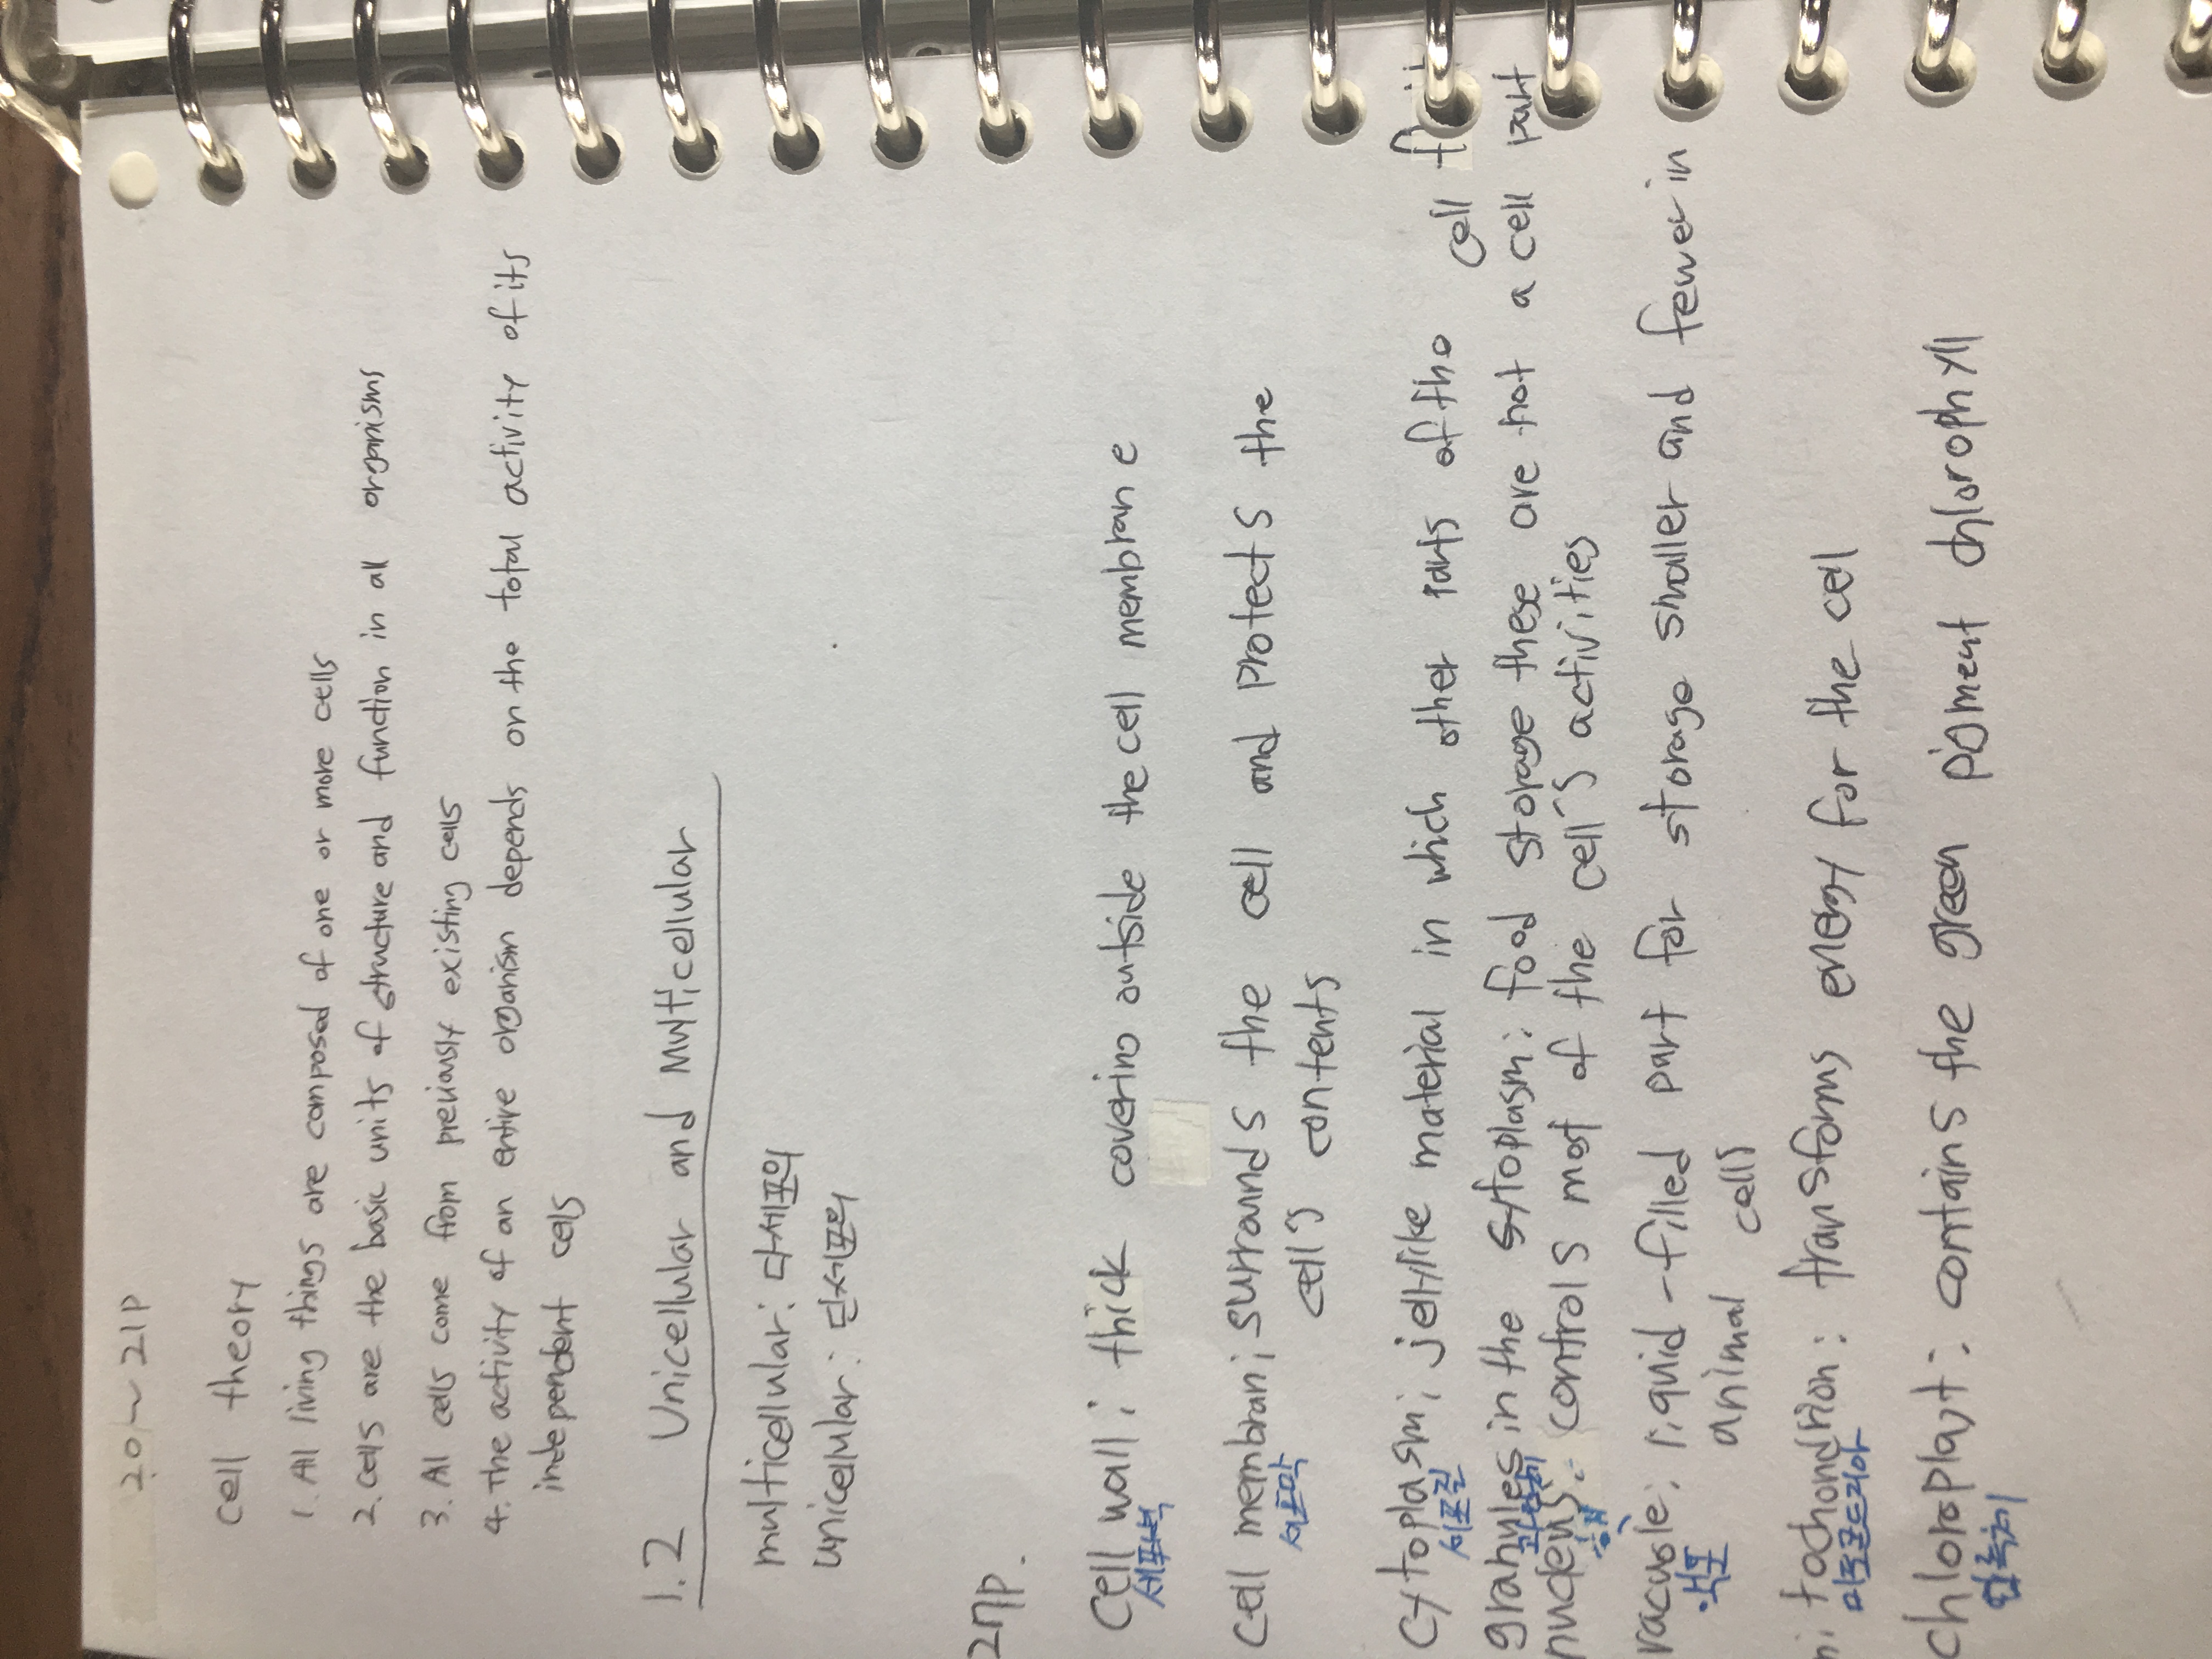 20~21P
cell theory
1. All living things are composed of one or more cells
2. Cells are the basic units of structure and function in all organisms
3. All cells come from previously existing cells
4. The activity of an entire organism depends on the total activity of its
independent cells
1.2 Unicellular and Multicellular
multicellular: 다세포의
unicellular: 단세포의
27p.
Cell wall; thick covering outside the cell membrane
세포벽
Cell membran; surrounds the cell and protects the
세포막
cell's contents
Cytoplasm; jellylike material in which other parts of the cell
세포질
granules in the sytoplasm: food storage these are not a cell part
nucleus: controls most of the cell's activities
핵
vacuole; liquid-filled part for storage smaller and fewer in
액포
animal cells
mitochondrion: transforms energy for the cell
미토콘드리아
Chloroplast: contains the green pigment chlorophyll
엽록체